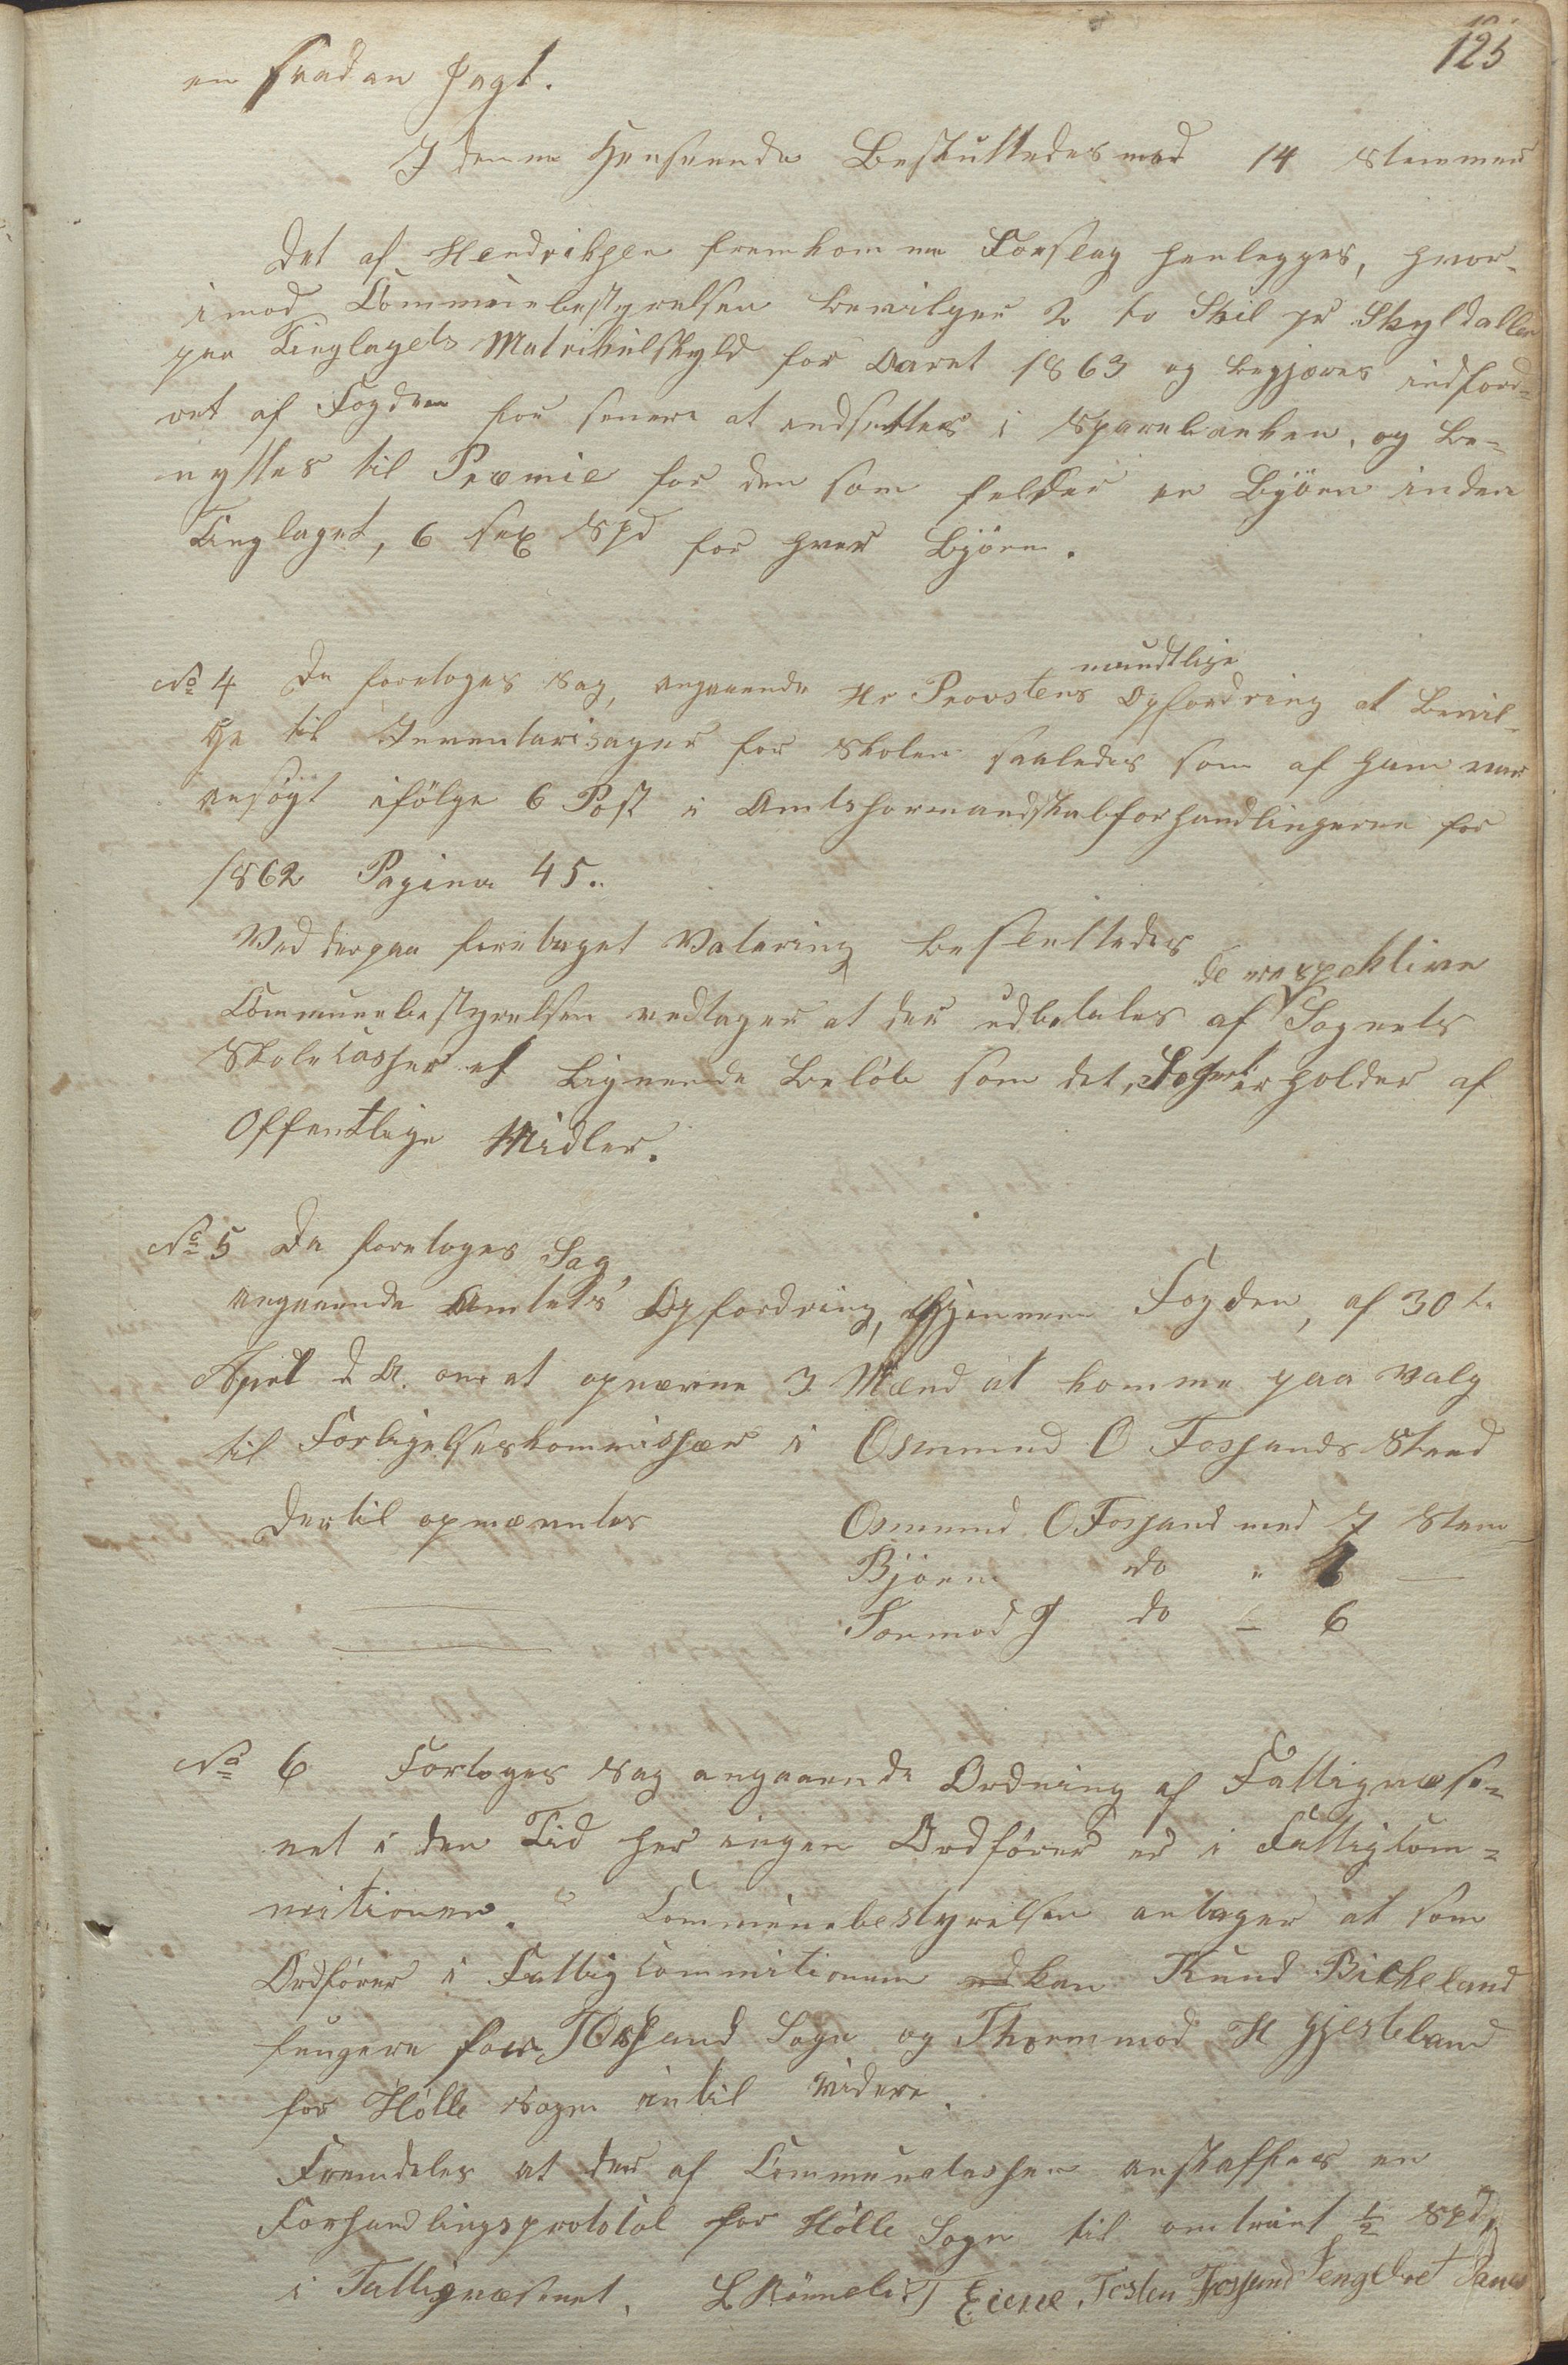 125
en saadan Jagt.
I denne Henseende Besluttedes med 14 Stemmer
Det af Hendriksen fremkomne Forslag henlegges, hvor-
imod Communebestyrelsen bevilger 2 to Skil pr Skyldaller
paa Tinglagets Matrikulskyld for Aaret 1863 og begjæres indford-
ret af Fogden for senere at indsættes i Sparebanken, og be-
nyttes til Præmie for den som felder en Bjørn inden
Tinglaget, 6 sex Spd for hver Bjørn.
No 4 Da foretoges Sag, angaaende Hr Provstens mundtlige Opfordring at bevil-
ge til Inventarisager for Skolen saaledes som af ham var
ansøgt ifölge 6 Post i Amtsformandskabforhandlingerne for
1862 Pagina 45.
Ved derpaa foretaget Votering besluttedes
Communebestyrelsen vedtager at der udbetales af de respektive Sognets
Skolecasser et Lignende Beløb som det, Sognet erholder af
Offentlige Midler.
No 5 Da foretoges Sag
angaaende Amtets Opfordring, igjennem Fogden, af 30te
April d. A. om at opnævne 3 Mænd at komme paa Valg
til Forligelseskommissær i Osmund O Fossands Sted
Dertil opnævntes Osmund O Fossand med 7 Stem
Bjørn do " —
Tormod J do — 6
No 6 Fortoges Sag angaaende Ordning af Fattigvæse-
net i den Tid her ingen Ordfører er i Fattigcom-
mitionen. Communebestyrelsen antager at som
Ordfører i Fattigcommitionen kan Knud Bikeland
fungere for Fossand Sogn og Thormod H Gjesteland
for Hölle Sogn indtil Videre.
Fremdeles at der af Communekassen anskaffes en
Forhandlingsprotokol for Hölle Sogn til omtrænt ½ Spd,
i Fattigvæsenet. L Rönneli T Eiene, Tosten Fossand Fengelbret